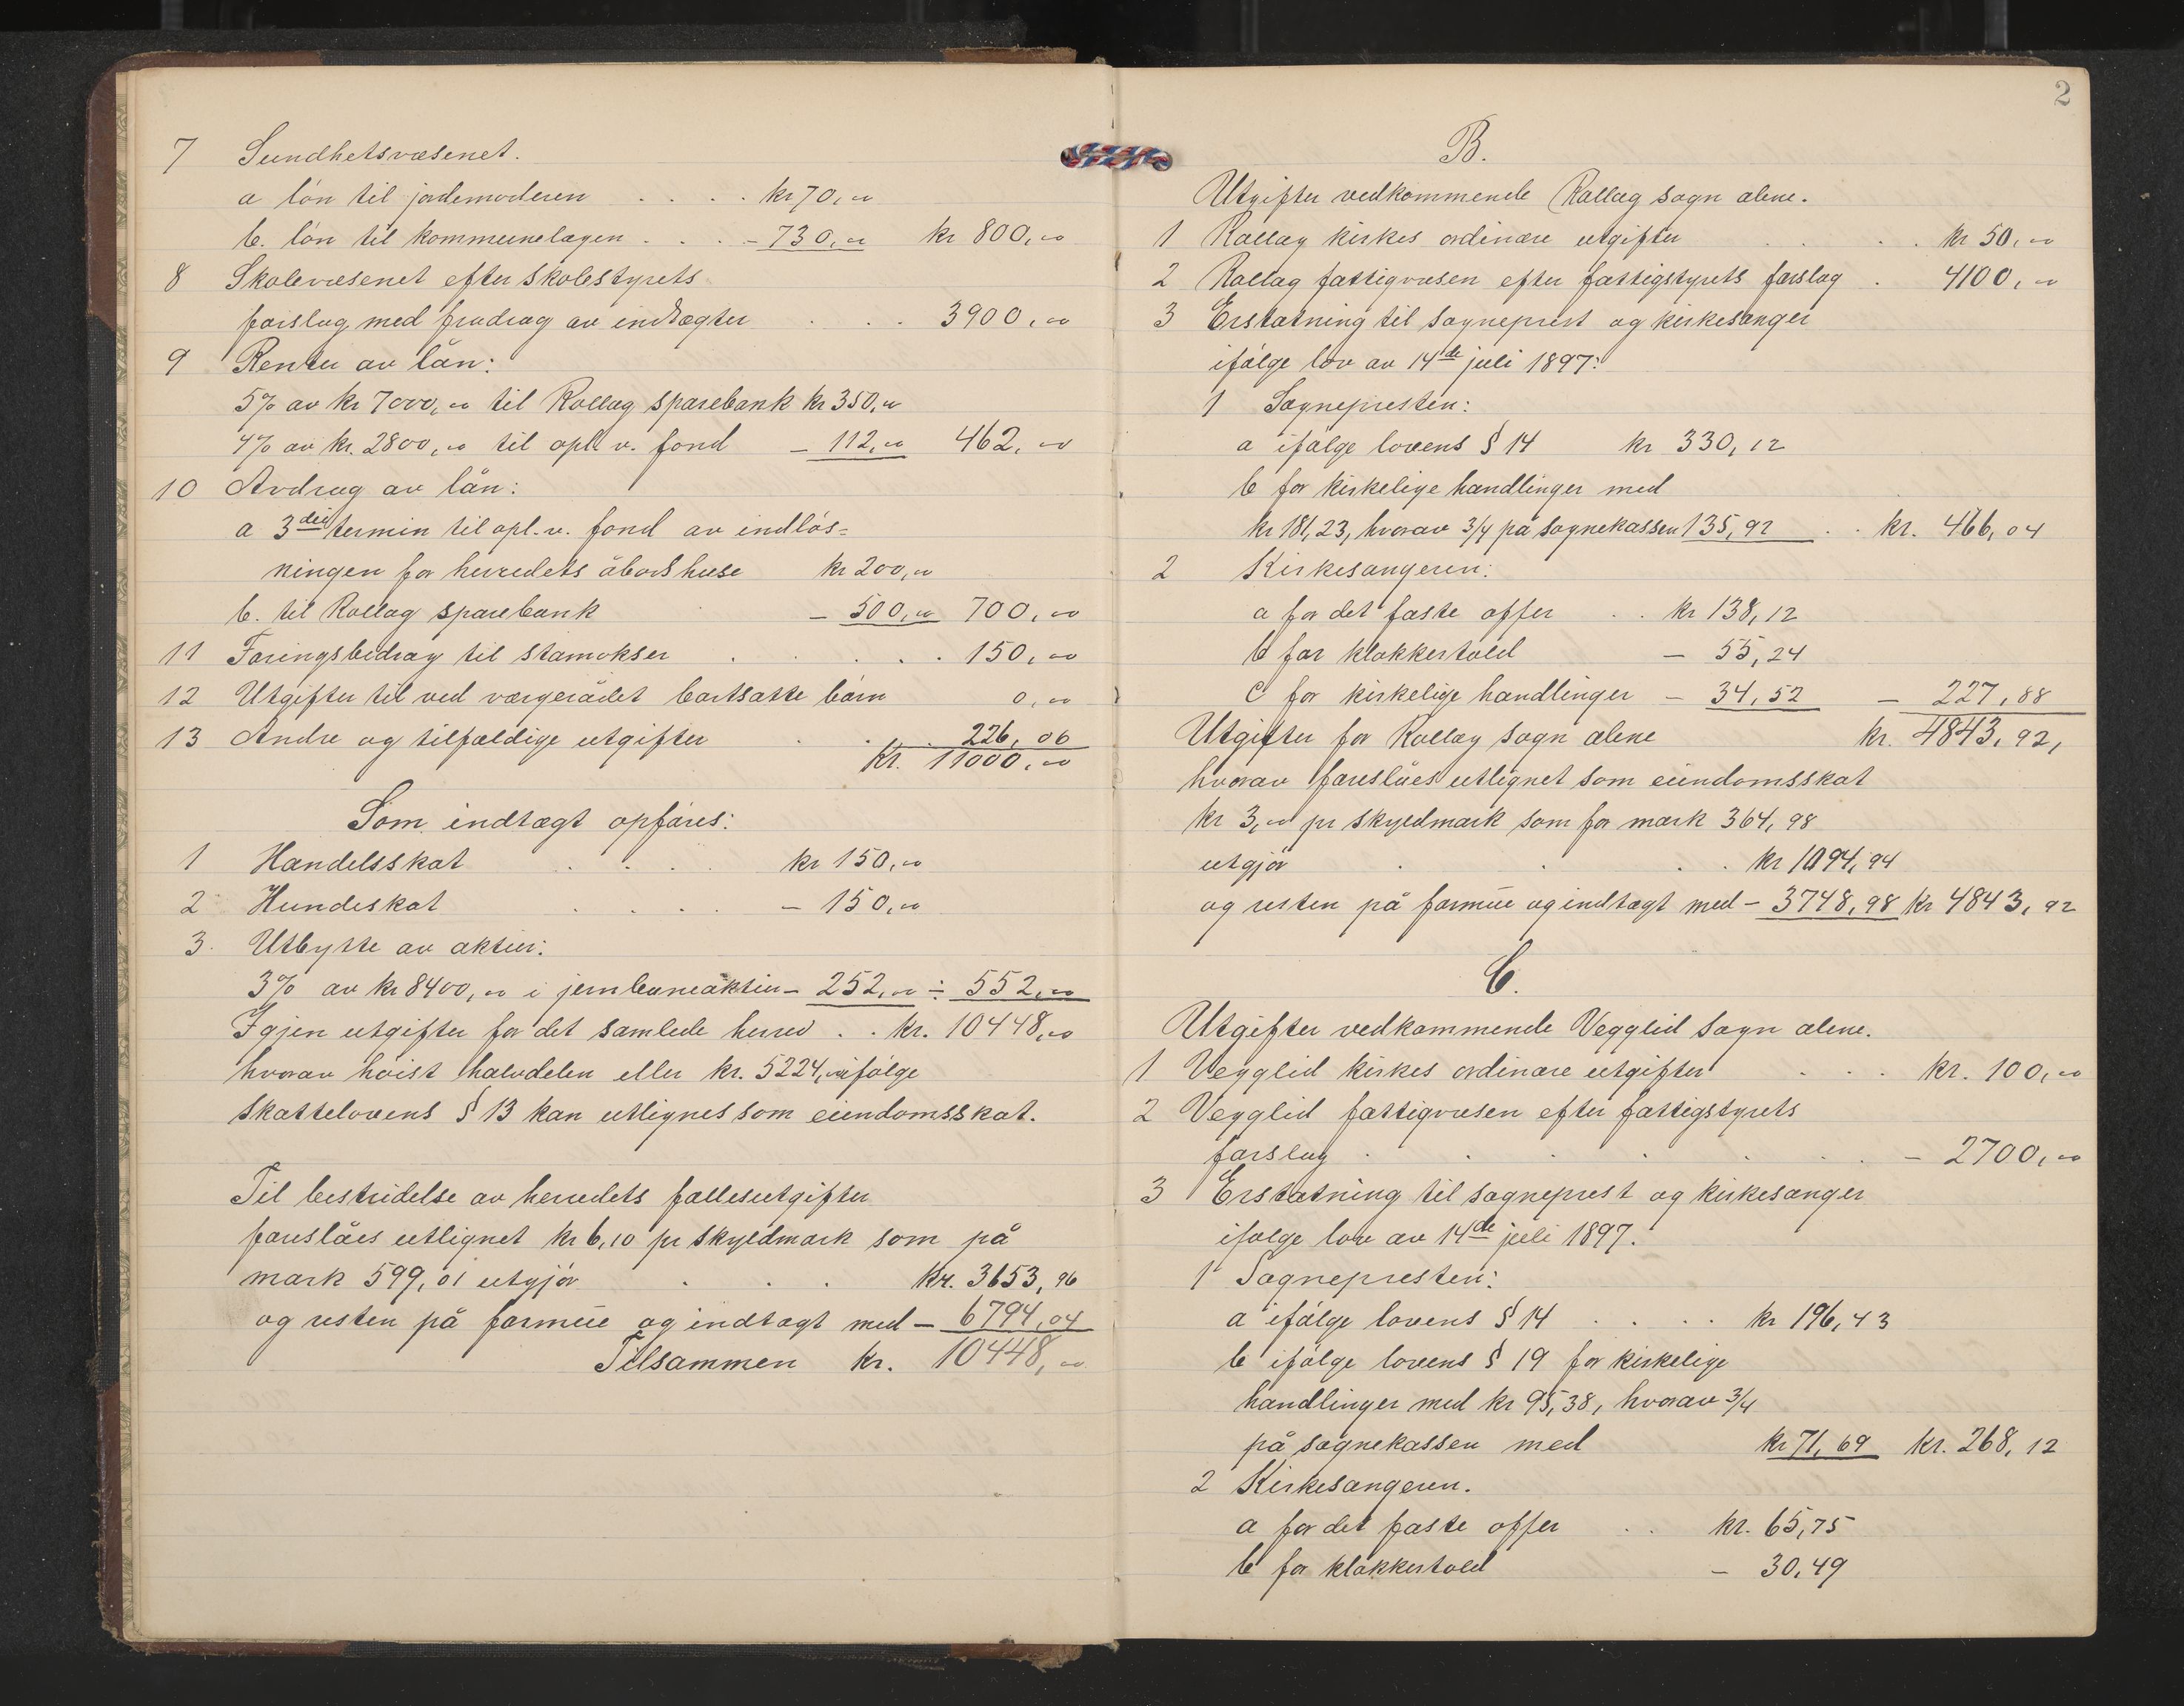 7 Sundhetsvæsenet.
a løn til jordemoderen . . . . kr 70,00
b. løn til kommunelægen . . . - 730,00 kr 800,00
8 Skolevæsenet efter skolestyrets
forslag med fradrag av indtægter . . . 3900,00
9 Renter av lån:
5% av kr 7000,00 til Rollag sparebank kr 350,00
4% av kr. 2800,00 til opl. v. fond - 112,00 462,00
10 Avdrag av lån:
a 3die termin til opl. v. fond av indløs-
ningen for herredets åbodshuse kr 200,00
b. til Rollag sparebank - 500,00 700,00
11 Foringsbidrag til stamokser . . . . 150,00
12 Utgifter til ved værgerådet bortsatte børn 0,00
13 Andre og tilfældige utgifter . . . 226,00
Kr. 11000,00
Som indtægt opføres:
1 Handelsskat . . . kr 150,00
2 Hundeskat . . . . - 150,00
3. Utbytte av aktier:
3% av kr 8400,00 i jernbaneaktier - 252,00 ÷ 552,00
Igjen utgifter for det samlede herred . . kr. 10448,00
hvorav høist halvdelen eller kr. 5224,00 ifølge
skattelovens § 13 kan utlignes som eiendomsskat.
Til bestridelse av herredets fællesutgifter
foreslåes utlignet kr 6,10 pr skyldmark som på
mark 599,01 utgjør . . . kr. 3653,96
og resten på formue og indtægt med - 6794,04
Tilsammen kr. 10448,00
2
B.
Utgifter vedkommende Rollag sogn alene.
1 Rollag kirkes ordinære utgifter . . . kr 50,00
2 Rollag fattigvæsen efter fattigstyrets forslag . 4100,00
3 Erstatning til sogneprest og kirkesanger
ifølge lov av 14de juli 1897:
1 Sognepresten:
a ifølge lovens § 14 kr 330,12
b for kirkelige handlinger med
kr 181,23, hvorav 3/4 på sognekassen 135,92 . . kr. 466,04
2 Kirkesangeren:
a for det faste offer . . kr 138,12
b for klokkertold - 55,24
c for kirkelige handlinger - 34,52 - 227,88
Utgifter for Rollag sogn alene kr. 4843,92,
hvorav foreslåes utlignet som eiendomsskat
kr 3,00 pr skyldmark som for mark 364,98
utgjør . . . . kr 1094,94
og resten på formue og indtægt med - 3748,98 kr 4843,92
C.
Utgifter vedkommende Vegglid sogn alene.
1 Vegglid kirkes ordinære utgifter . . . kr. 100,00
2 Vegglid fattigvæsen efter fattigstyrets
forslag . . . . . . . - 2700,00
3 Erstatning til sogneprest og kirkesanger
ifølge lov av 14de juli 1897.
1 Sognepresten:
a ifølge lovens § 14 . . . . kr 196,43
b ifølge lovens § 19 for kirkelige
handlinger med kr 95,38, hvorav 3/4
på sognekassen med kr 71,69 kr. 268,12
2 Kirkesangeren.
a for det faste offer . . kr. 65,75
b for klokkertold - 30,49